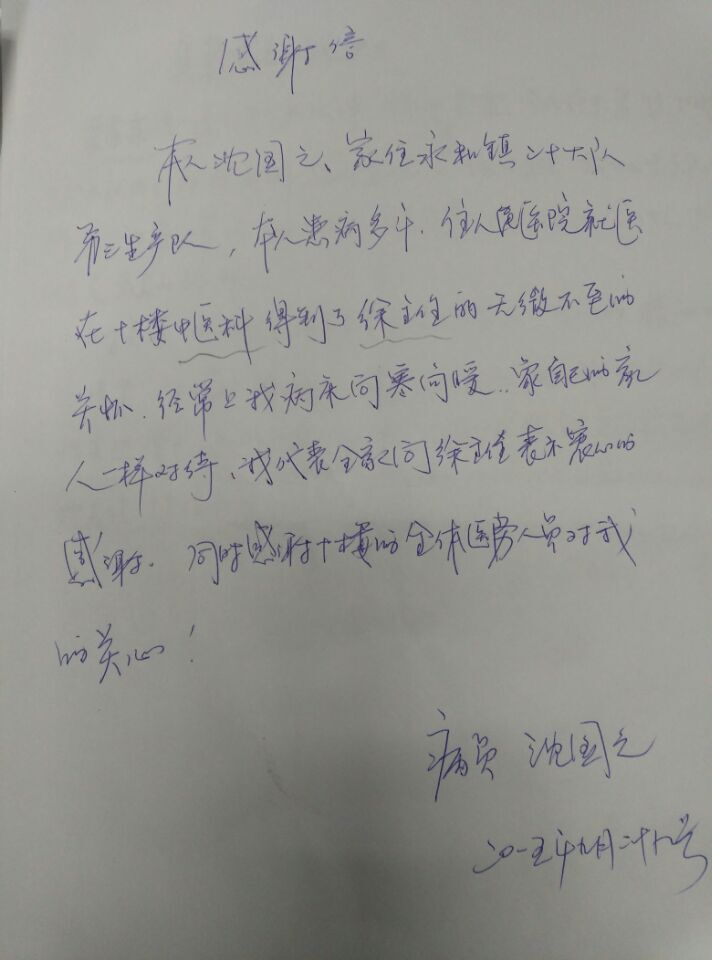 感谢信
本人沈国之、家住永和镇二十大队
第三生产队，本人患病多年.住人民医院就医
在十楼中医科得到了徐主任的无微不至的
关怀.经常上我病床问寒问暖..家自己的家
人一样对待、我代表全家向徐主任表示衷心的
感谢.同时感谢十楼的全体医务人员对我
的关心！
病员 沈国之
二0一五年九月二十八号